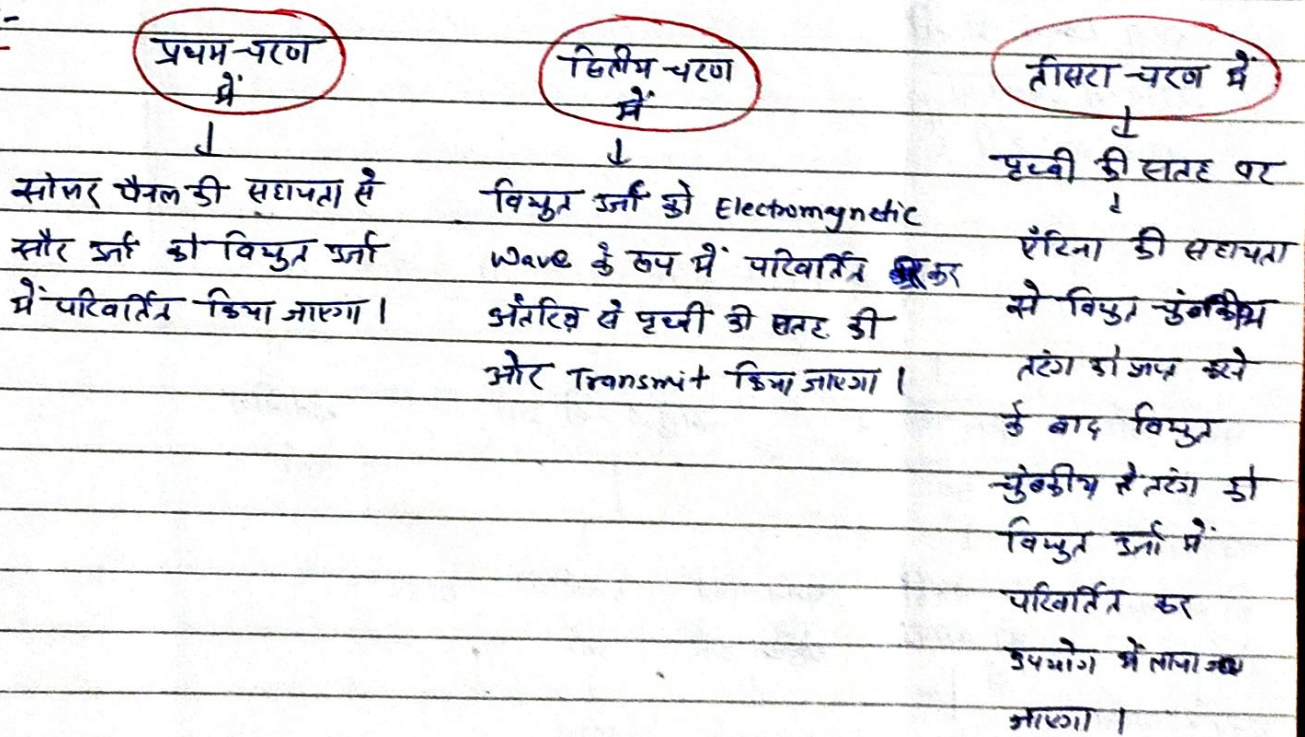 :-
प्रथम चरण
में
↓
सोलर पैनल की सहायता से
सौर उर्जा को विद्युत उर्जा
में परिवर्तित किया जाएगा।
द्वितीय चरण
में
↓
विद्युत उर्जा को Electromagnetic
Wave के रूप में परिवर्तित कर
अंतरिक्ष से पृथ्वी की सतह की
ओर Transmit किया जाएगा।
तीसरा चरण में
↓
पृथ्वी की सतह पर
↓
एंटिना की सहायता
से विद्युत चुंबकीय
तरंग को प्राप्त करने
के बाद विद्युत
चुंबकीय तरंग को
विद्युत उर्जा में
परिवर्तित कर
उपयोग में लाया
जाएगा।